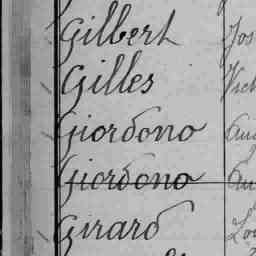 Gilbert Jos
Gilles Vict
Giordono
Giordono
Girard Lou